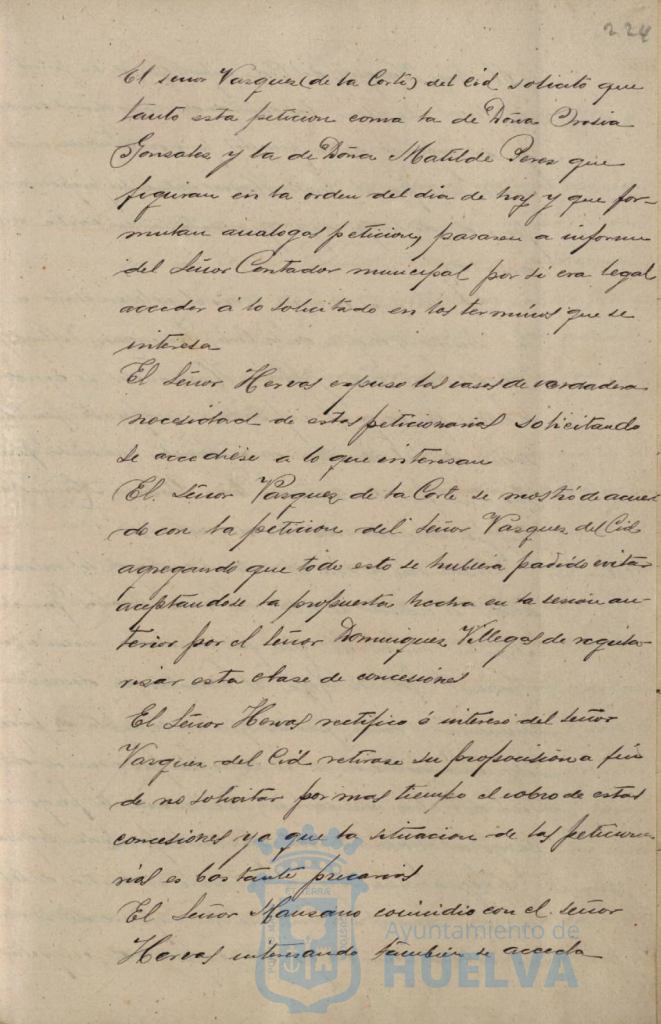 224
El señor Vazquez (de la Corte) del Cid solicitó que
tanto esta peticion como la de Doña Orosia
Gonzalez y la de Doña Matilde Perez que
figuran en la orden del dia de hoy y que for-
mulan analogas peticiones, pasasen a informe
del Señor Contador municipal por si era legal
acceder á lo solicitado en los terminos que se
interesa
El Señor Hervas expuso los casos de verdadera
necesidad de estas peticionarias solicitando
se accediese a lo que interesan
El Señor Vazquez de la Corte se mostró de acuer-
do con la peticion del Señor Vazquez del Cid
agregando que todo esto se hubiera podido evitar
aceptandose la propuesta hecha en la sesión an-
terior por el Señor Dominguez Villegas de regula-
rizar esta clase de concesiones
El Señor Hervas rectifico é intereso del señor
Vazquez del Cid retirase su proposición a fin
de no solicitar por mas tiempo el cobro de estas
concesiones ya que la situacion de las peticiona-
rias es bastante precaria
El Señor Manzano coincidio con el señor
Hervas interesando tambien se acceda
Ayuntamiento de
HUELVA